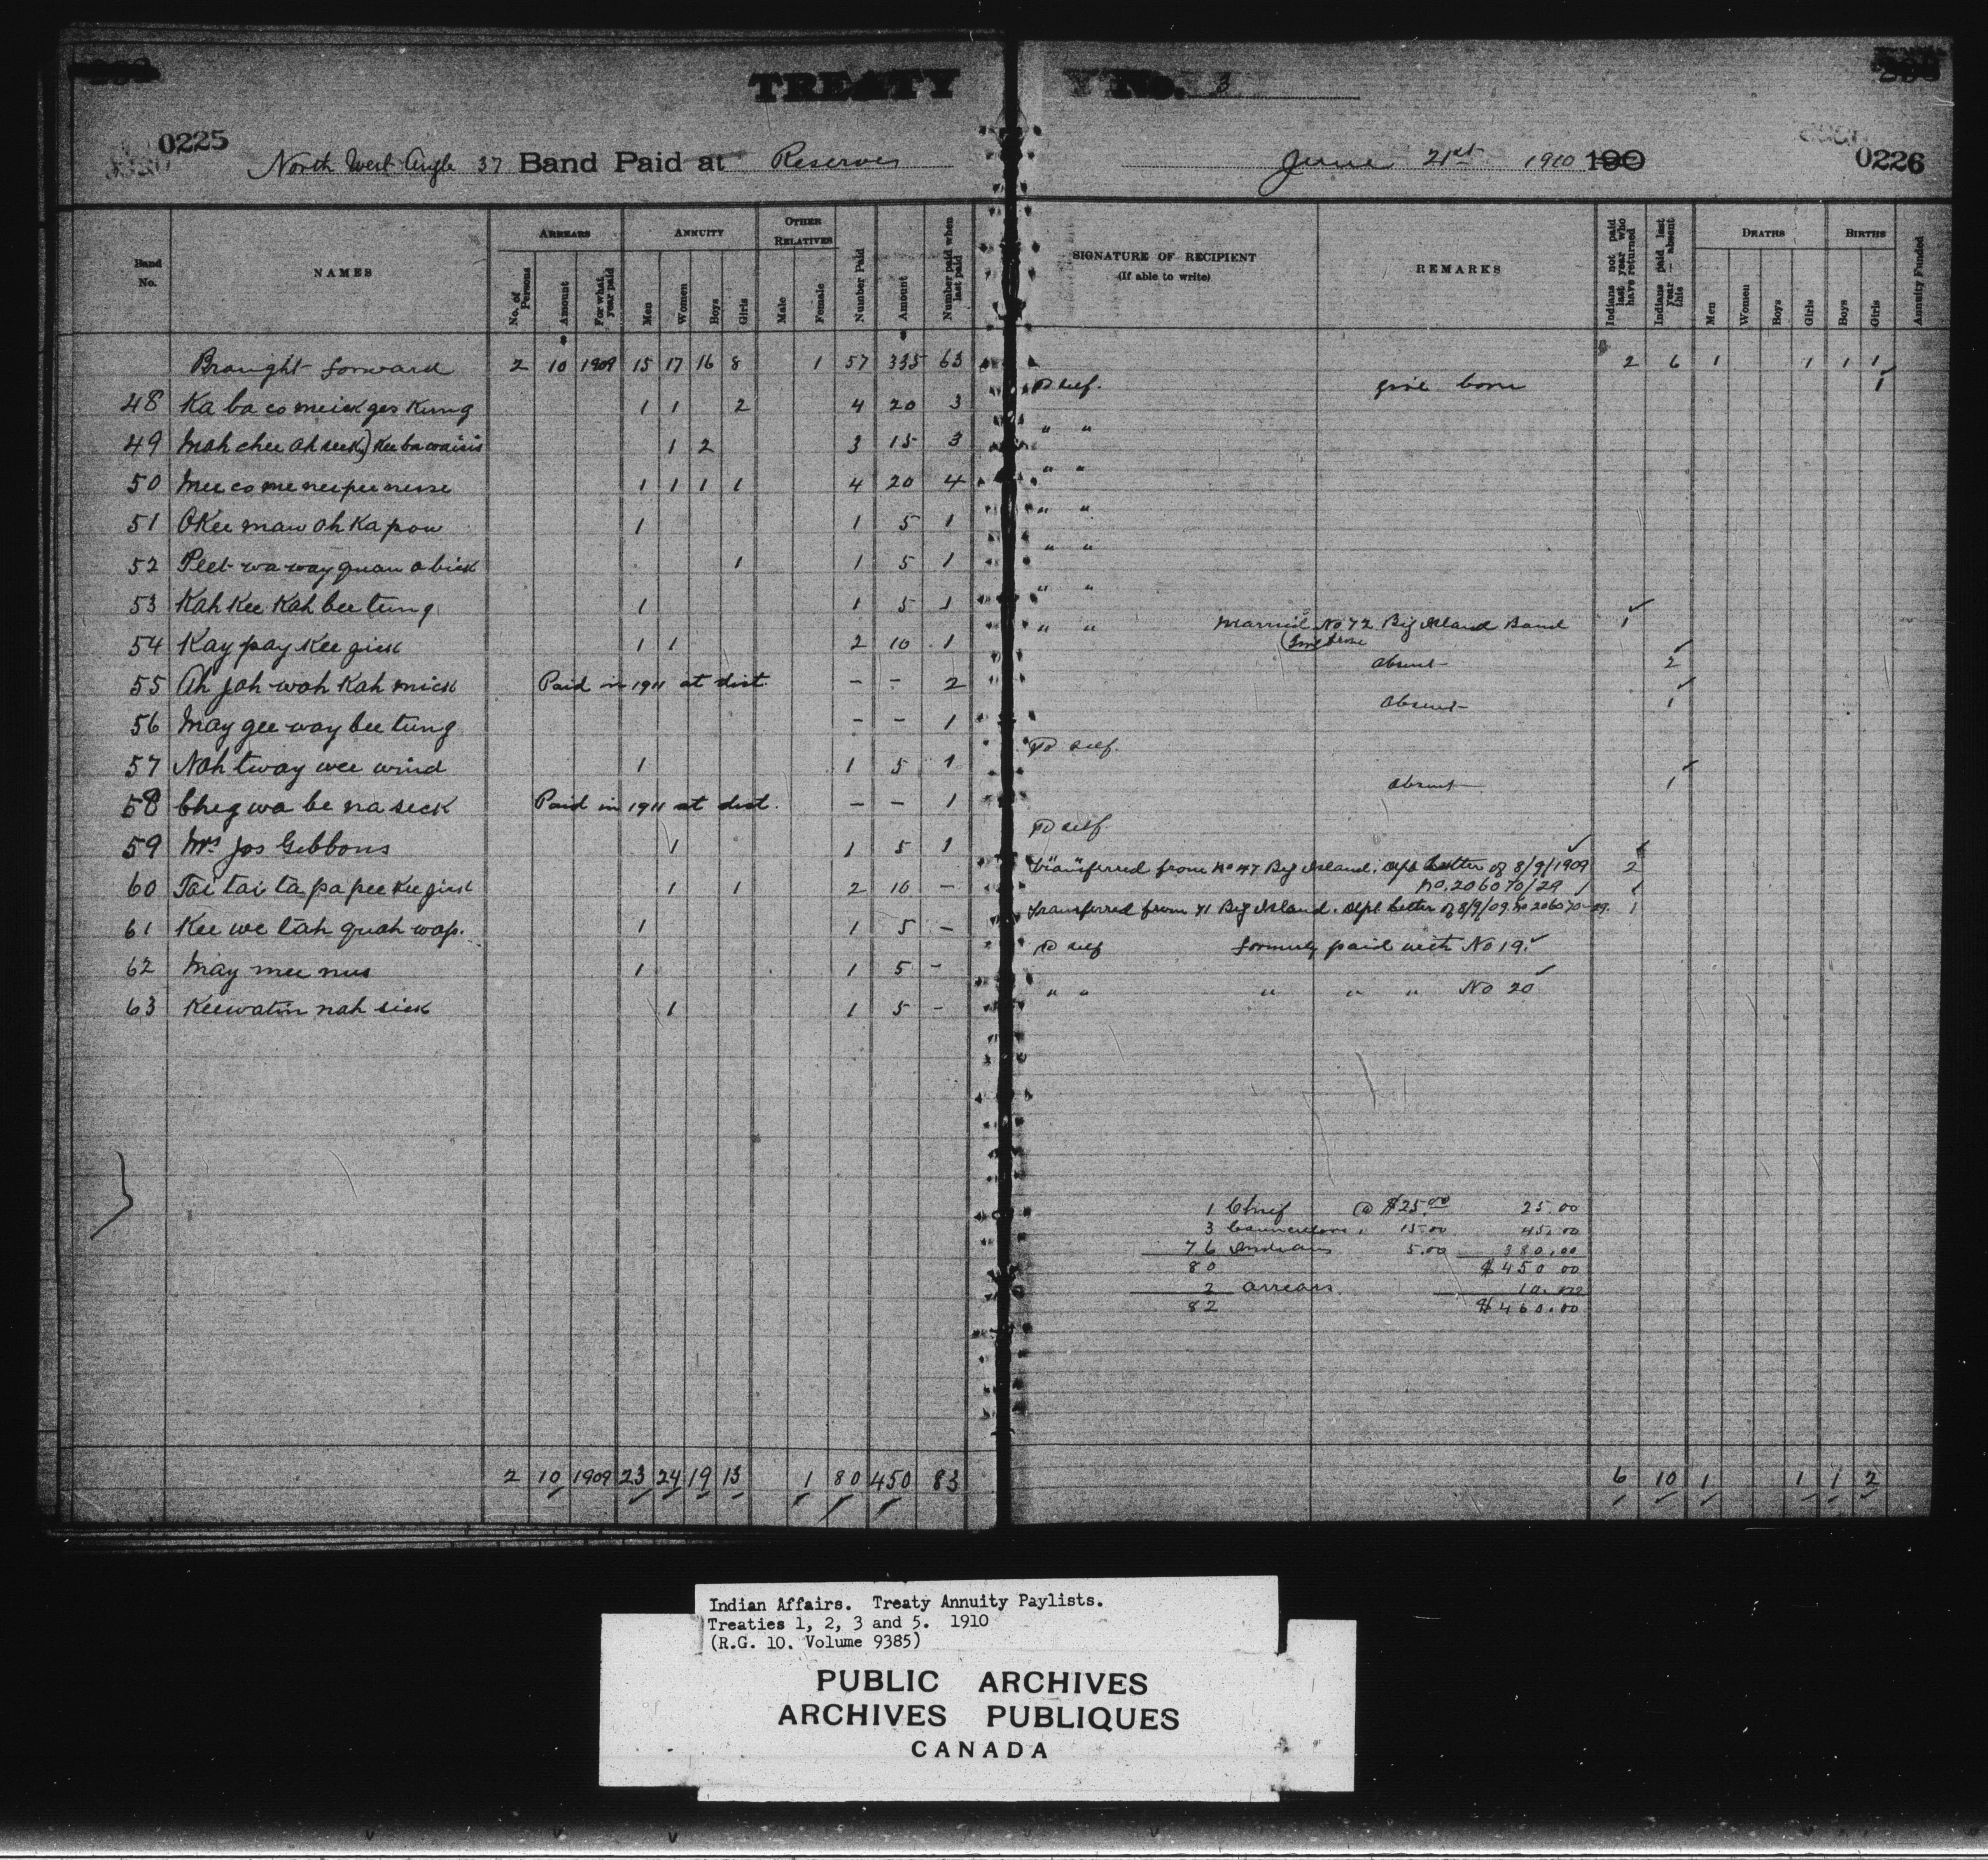 TREATY No. 3
0225
North West Angle 37 Band Paid at Reserves
June 21st 1910 190
0226
Band No.
NAMES
ARREARS
No. of Persons
Amount
For what year paid
ANNUITY
Men
Women
Boys
Girls
OTHER RELATIVES
Male
Female
Number Paid
Amount
Number paid when last paid
SIGNATURE OF RECIPIENT
(If able to write)
REMARKS
Indians not paid last year who have returned
Indians paid last year - absent this
DEATHS
Men
Women
Boys
Girls
BIRTHS
Boys
Girls
Annuity Funded
Brought forward 2 10 1909 15 17 16 8 1 57 335 63 2 6 1 1 1 1
48 Ka ba co meick ges kung 1 1 2 4 20 3 To self. girl born 1
49 Mah chee ah seek) Kee ba waisis 1 2 3 15 3 " "
50 Mee co me nee pee nesse 1 1 1 1 4 20 4 " "
51 OKee maw ah Ka pow 1 1 5 1 " "
52 Peet wa way quan a bick 1 1 5 1 " "
53 Kah Kee Kah bee tung 1 1 5 1 " "
54 Kay pay Kee gick 1 1 2 10 1 " " Married No 72 Big Island Band 1
55 Ah jah wah Kah mick Paid in 1911 at dist. - - 2 absent 2
56 May gee way bee tung - - 1 absent 1
57 Nah tway wee wind 1 1 5 1 To self.
58 Cheg wa be na seck Paid in 1911 at dist. - - 1 absent 1
59 Mrs Jos Gibbons 1 1 5 1 To self.
60 Tai tai ta pa pee Kee gick 1 1 2 10 - Transferred from No 47 Big Island. Dept letter of 8/9/1909 2
No. 206070/29 1
61 Kee we tah quah wap. 1 1 5 - Transferred from 71 Big Island. Dept letter of 8/9/09. No 206070-29. 1
62 May mee nus 1 1 5 - To self formerly paid with No 19.
63 Keewatin nah sick 1 1 5 - " " " " " No 20
1 Chief @ $25.00 25.00
3 Councillors " 15.00 45.00
76 Indians 5.00 380.00
80 $450 00
2 arrears 10.00
82 $460.00
2 10 1909 23 24 19 13 1 80 450 83 6 10 1 1 1 2
Indian Affairs. Treaty Annuity Paylists.
Treaties 1, 2, 3 and 5. 1910
(R.G. 10. Volume 9385)
PUBLIC ARCHIVES
ARCHIVES PUBLIQUES
CANADA